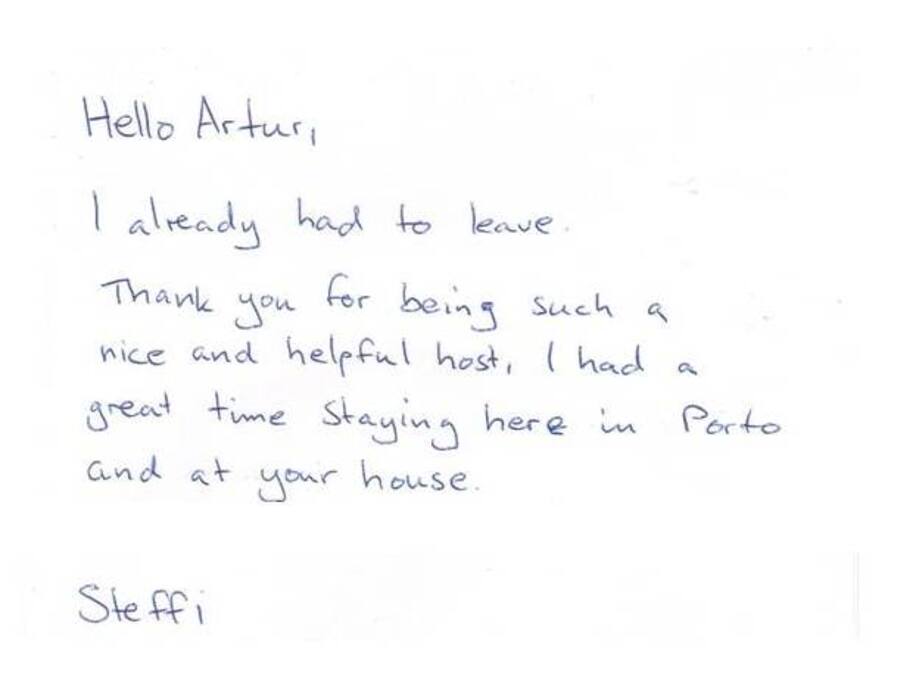 Hello Artur,
I already had to leave.
Thank you for being such a
nice and helpful host, I had a
great time staying here in Porto
and at your house.
Steffi